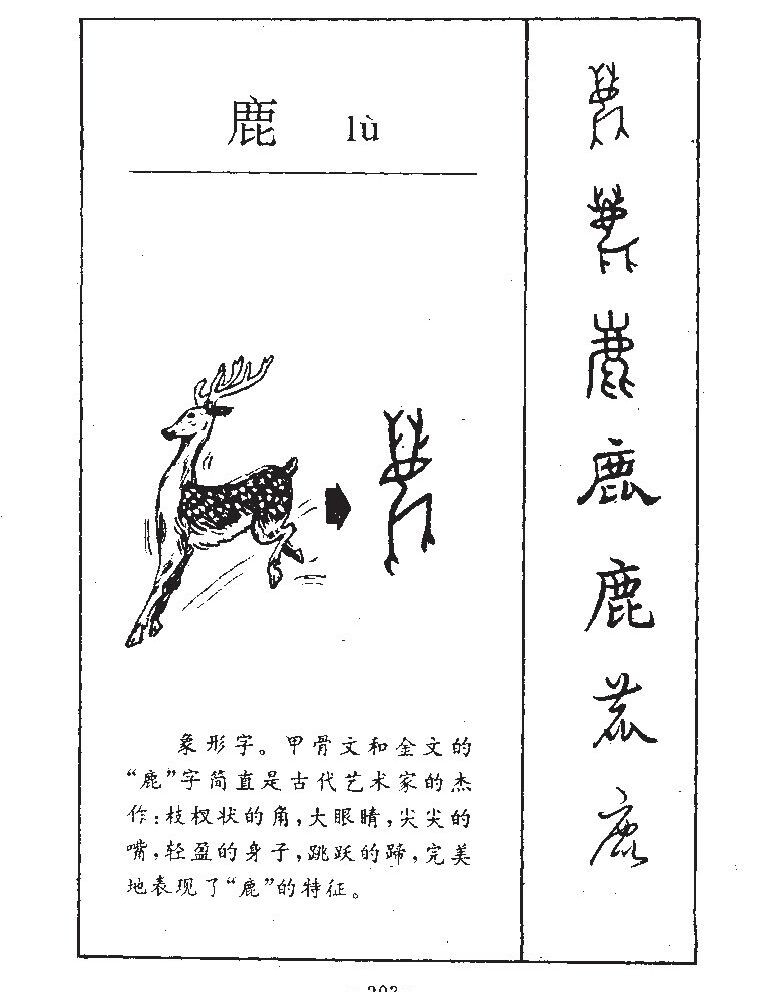 鹿 lù
象形字。甲骨文和金文的
“鹿”字简直是古代艺术家的杰
作:枝杈状的角,大眼睛,尖尖的
嘴,轻盈的身子,跳跃的蹄,完美
地表现了“鹿”的特征。
鹿
鹿
鹿
鹿
鹿
鹿
鹿